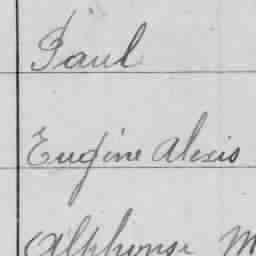 Paul
Eugène Alexis
Alphonse M